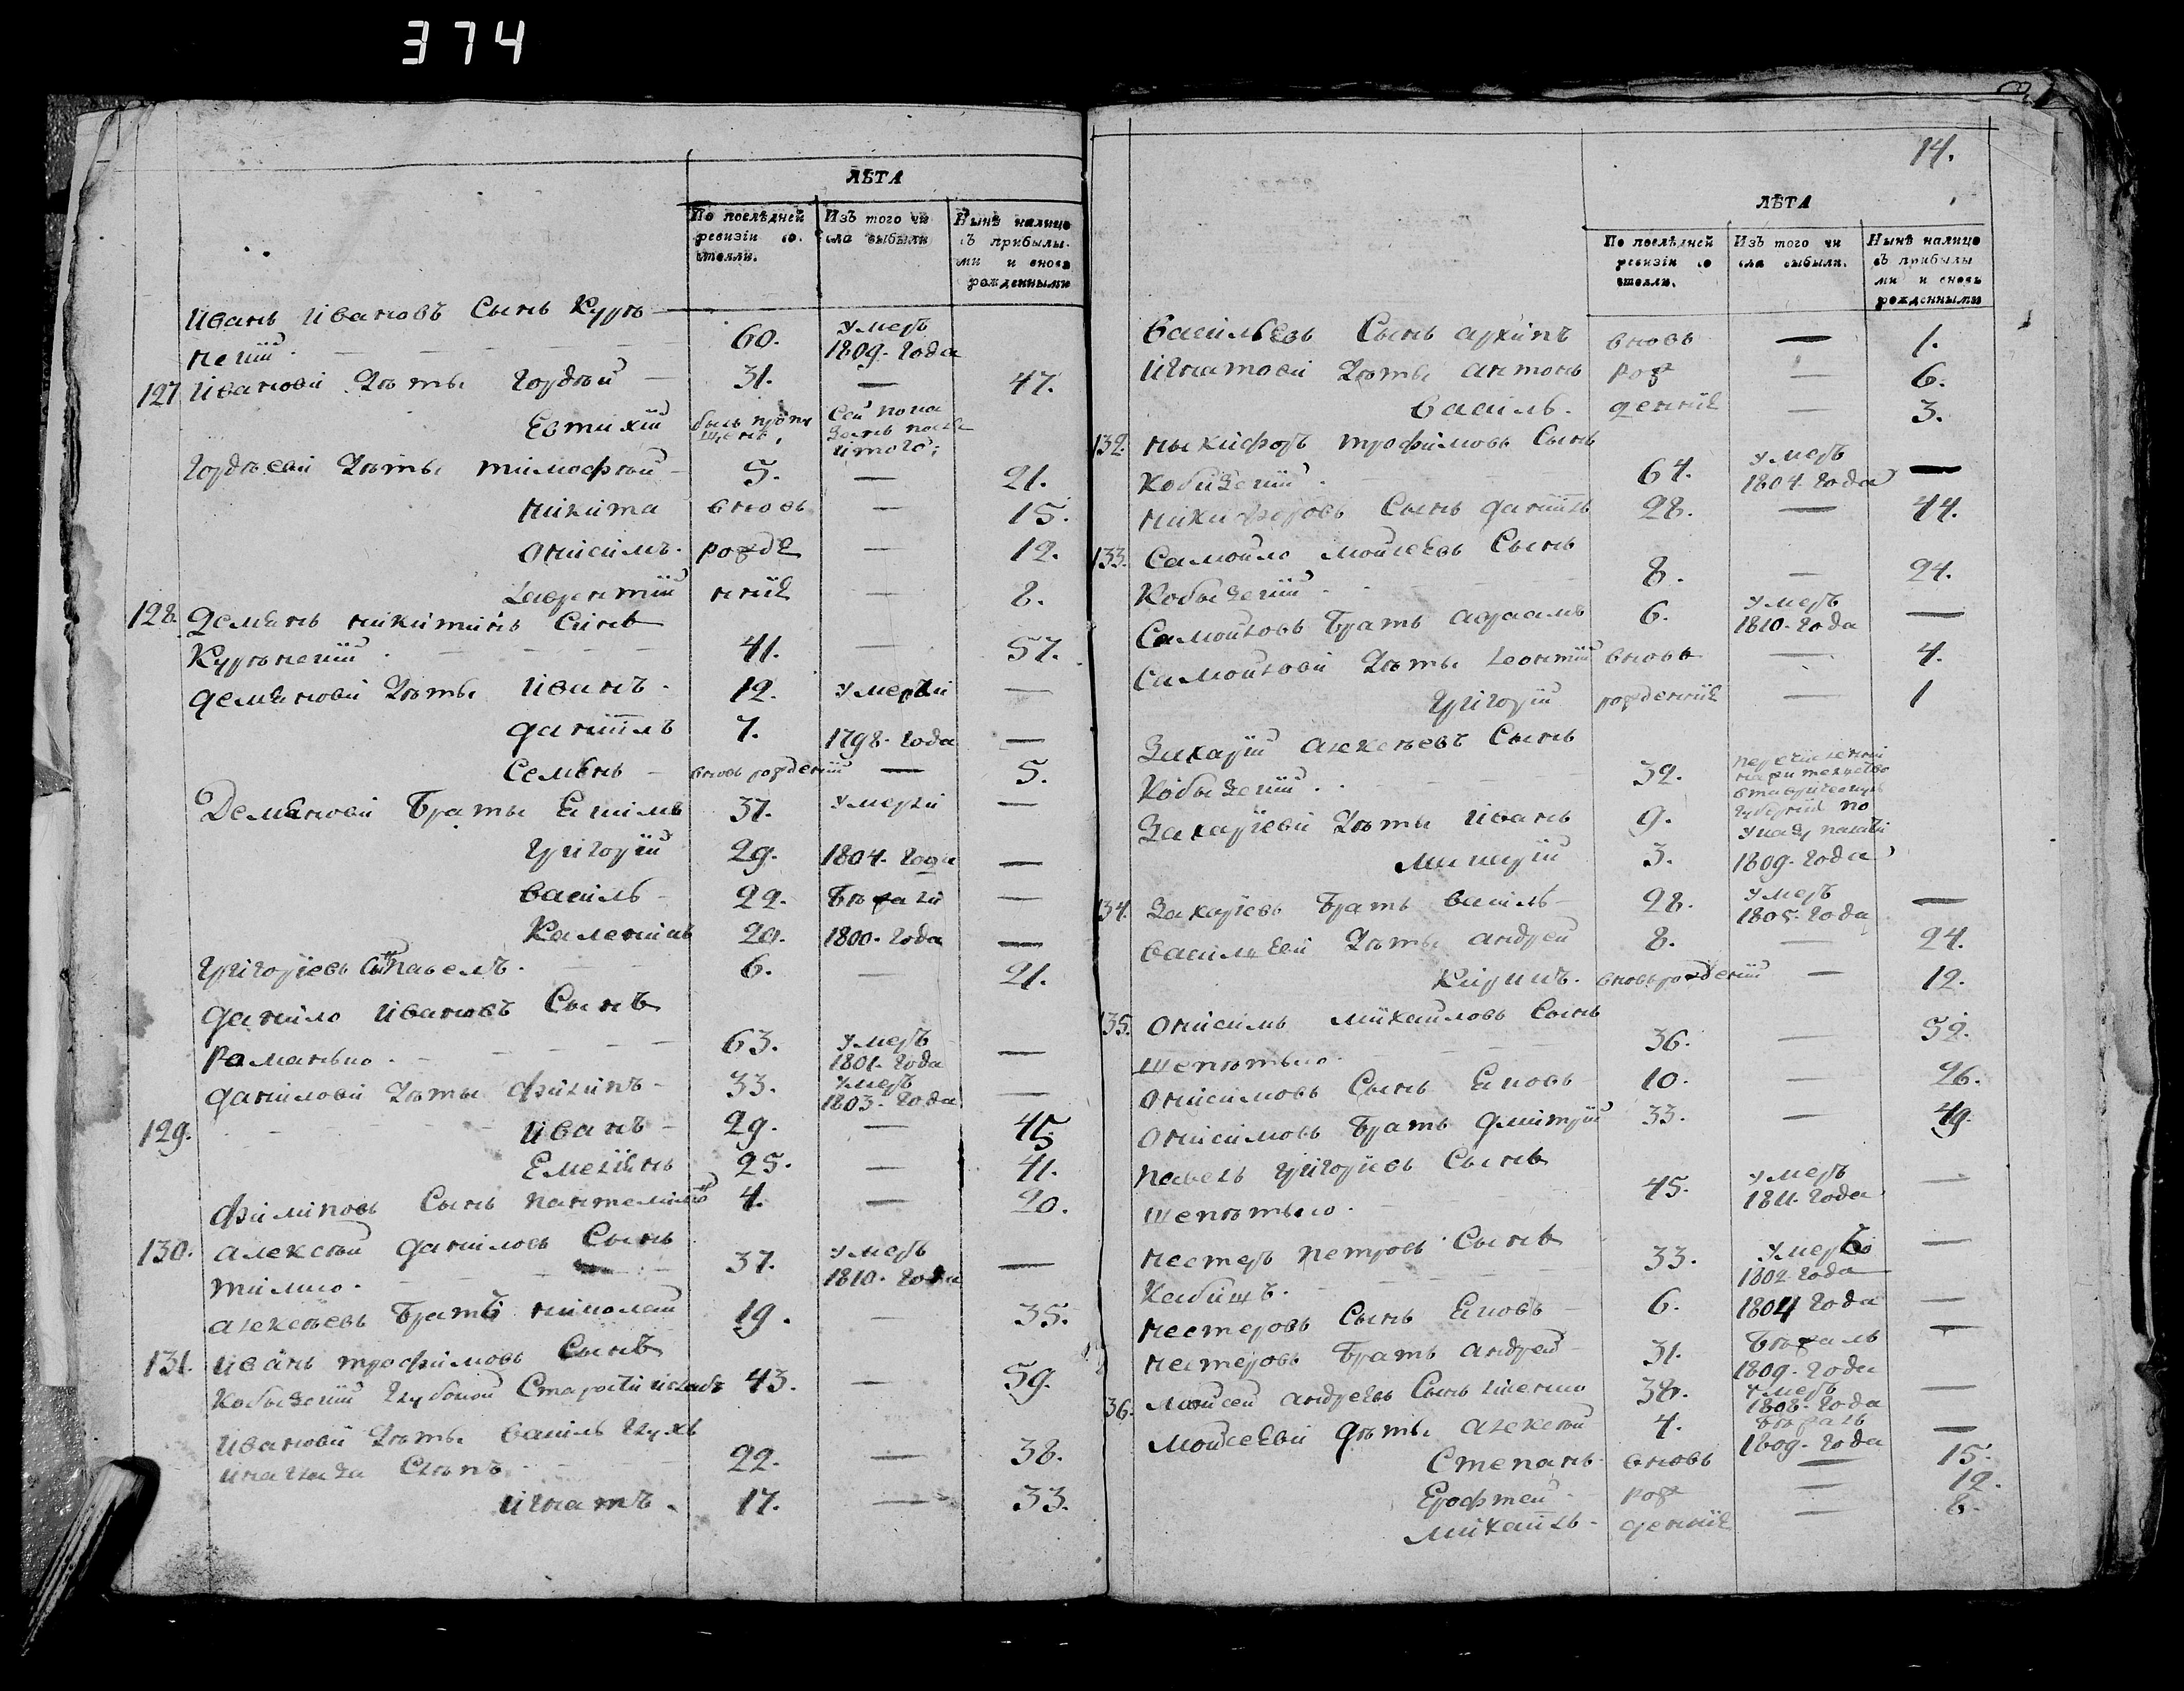 374
ЛѢТА
По послѣдней ревизіи со стояли.
Изъ того чи сла выбыли
Нынѣ налицо съ прибылы ми и вновь рожденными
Иванъ Ивановъ Сынъ
60. умеръ 1809. года
127 Ивановы Дѣти Гордѣй 31. — 47.
Евтихій былъ
Гордѣевы Дѣти Тимофѣй 5. — 21.
Никита вновь — 15.
Онисимъ рожде — 12.
Лаврентій нніе — 8.
128. Демьянъ Никитинъ Сынъ
41. — 57.
Демьяновы Дѣти Иванъ 12. умерли —
Даніилъ 7. 1798. года —
Семенъ вновь рожденій — 5.
Демьяновы Братья Ефимъ 37. умерли —
Григорій 29. 1804. года —
Василь 22. Бѣжали —
Каленикъ 20. 1800. года —
Григорьевъ Сынъ Павелъ 6. — 21.
Данило Ивановъ Сынъ
Романько 63. умеръ 1801. года —
Даниловы Дѣти Филипъ 33. умеръ 1803. года —
129. Иванъ 29. — 45
Емеліянъ 25. — 41.
Филиповъ Сынъ Пантелимонъ 4. — 20.
130. Алексѣй Даниловъ Сынъ
37. умеръ 1810. года —
Алексѣевъ Братъ Николай 19. — 35.
131. Иванъ Трофимовъ Сынъ
43. — 59.
Ивановы Дѣти Василь
22. — 38.
Игнатъ 17. — 33.
14.
ЛѢТА
По послѣдней ревизіи со стояли.
Изъ того чи сла выбыли.
Нынѣ налицо съ прибылы ми и вновь рожденными
Васильевъ Сынъ Архипъ вновь — 1.
Игнатовы Дѣти Антонъ рож — 6.
Василь денніе — 3.
132. Никифоръ Трофимовъ Сынъ
64. умеръ 1804. года —
Никифоровъ Сынъ Даніилъ 28. — 44.
133. Самойло Мойсеевъ Сынъ
8. — 24.
Самойловъ Братъ Авраамъ 6. умеръ 1810. года —
Самойловы Дѣти Леонтій вновь — 4.
Григорій рожденніе — 1
Захарій Алексѣевъ Сынъ
32.
Захарьевы Дѣти Иванъ 9.
3. 1809. года
134. Захарьевъ Братъ Василь 28. умеръ 1805. года —
Васильевы Дѣти Андрей 8. — 24.
вновь рожденій — 12.
135. Онисимъ Михайловъ Сынъ
36. — 52.
Онисимовъ Сынъ 10. — 26.
Онисимовъ Братъ Дмитрій 33. — 49.
Павелъ Григорьевъ Сынъ
45. умеръ 1811. года —
Нестеръ Петровъ Сынъ
33. 1802. года —
Нестеровъ Сынъ 6. 1804 года —
Нестеровъ Братъ Андрей 31. Бѣжалъ 1809. года —
36. Мойсей Андреевъ Сынъ 38. умеръ 1808. года —
Мойсеевы Дѣти Алексѣй 4. Бѣжалъ 1809. года —
Степанъ вновь — 15.
Ерофтей рож — 12.
Михаилъ денніе — 8.